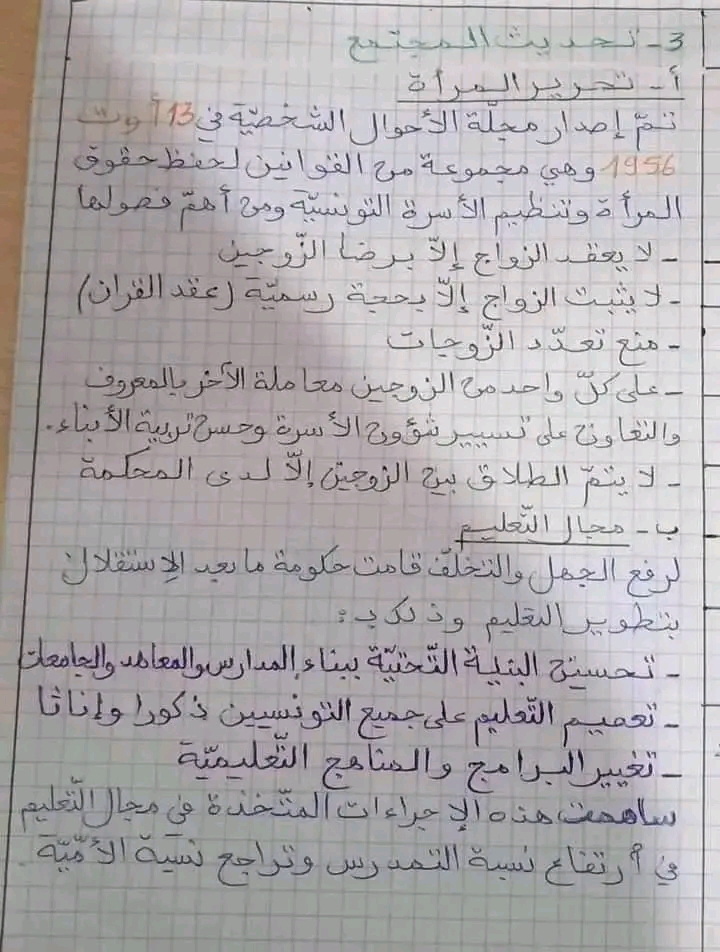 3- تحديث المجتمع
أ- تحرير المرأة
تمّ إصدار مجلّة الأحوال الشخصيّة في 13 أوت
1956 وهي مجموعة من القوانين لحفظ حقوق
المرأة وتنظيم الأسرة التونسيّة ومن أهمّ فصولها
- لا يعقد الزواج إلاّ برضا الزّوجين
- لا يثبت الزواج إلاّ بحجة رسميّة (عقد القران)
- منع تعدّد الزّوجات
- على كلّ واحد من الزوجين معاملة الآخر بالمعروف
والتعاون على تسيير شؤون الأسرة وحسن تربية الأبناء.
- لا يتمّ الطلاق بين الزوجين إلاّ لدى المحكمة
ب- مجال التّعليم
لرفع الجهل والتخلّف قامت حكومة ما بعد الإستقلال
بتطوير التعليم وذلك ب:
- تحسين البنية التّحتيّة ببناء المدارس والمعاهد والجامعات
- تعميم التّعليم على جميع التونسيين ذكورا وإناثا
- تغيير البرامج والمناهج التّعليميّة
ساهمت هذه الإجراءات المتّخذة في مجال التّعليم
في أرتفاع نسبة التمدرس وتراجع نسبة الأمّيّة